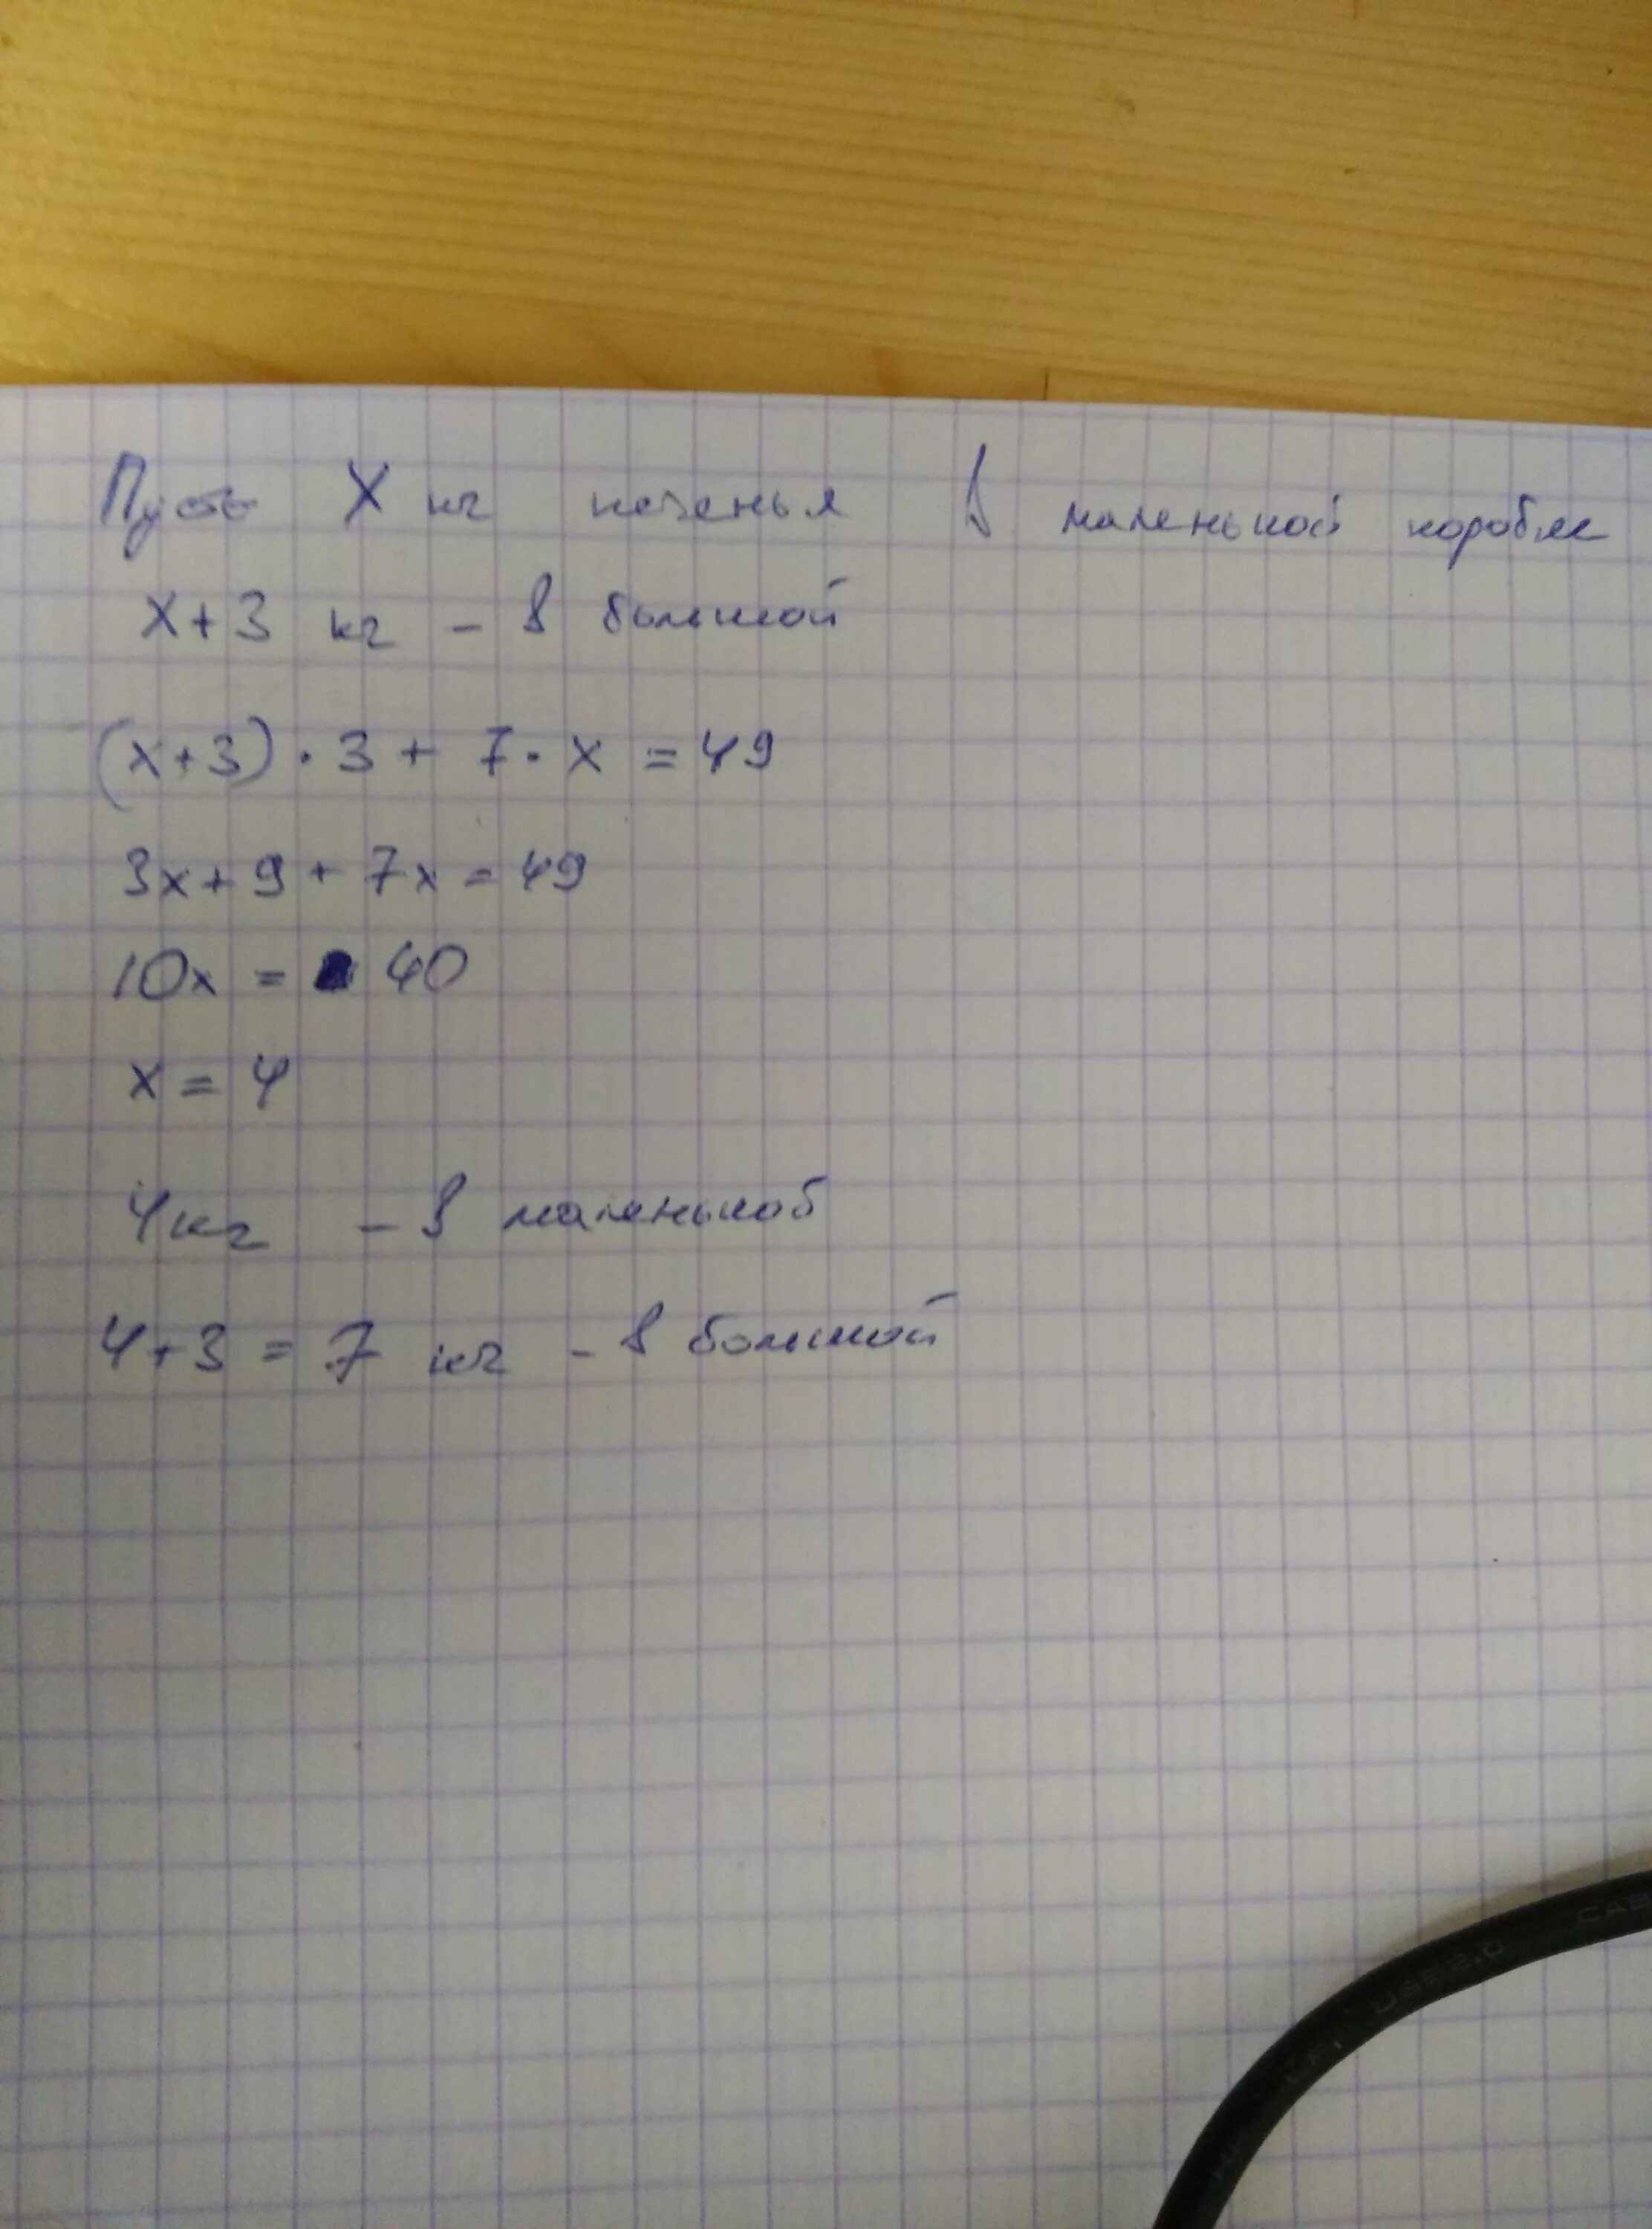 Пусть X кг печенья в маленькой коробке
x+3 кг - в большой
(x+3) · 3 + 7 · x = 49
3x + 9 + 7x = 49
10x = 40
x = 4
4кг - в маленькой
4+3 = 7 кг - в большой
USB2.0 CAB